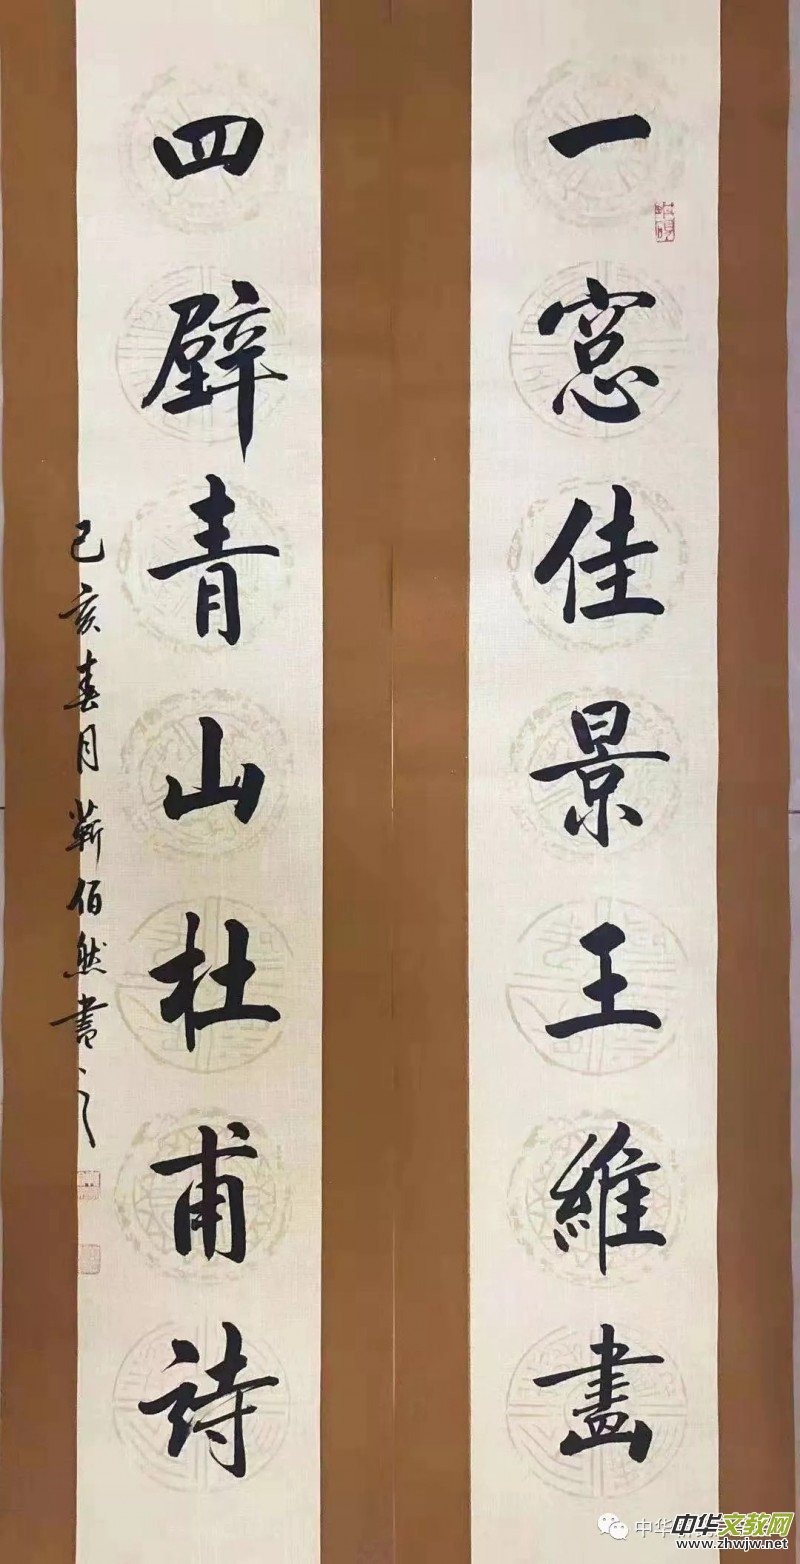 一窓佳景王維畫
四壁青山杜甫詩
己亥春月蕲佰然書
中华文教网
www.zhwjw.net